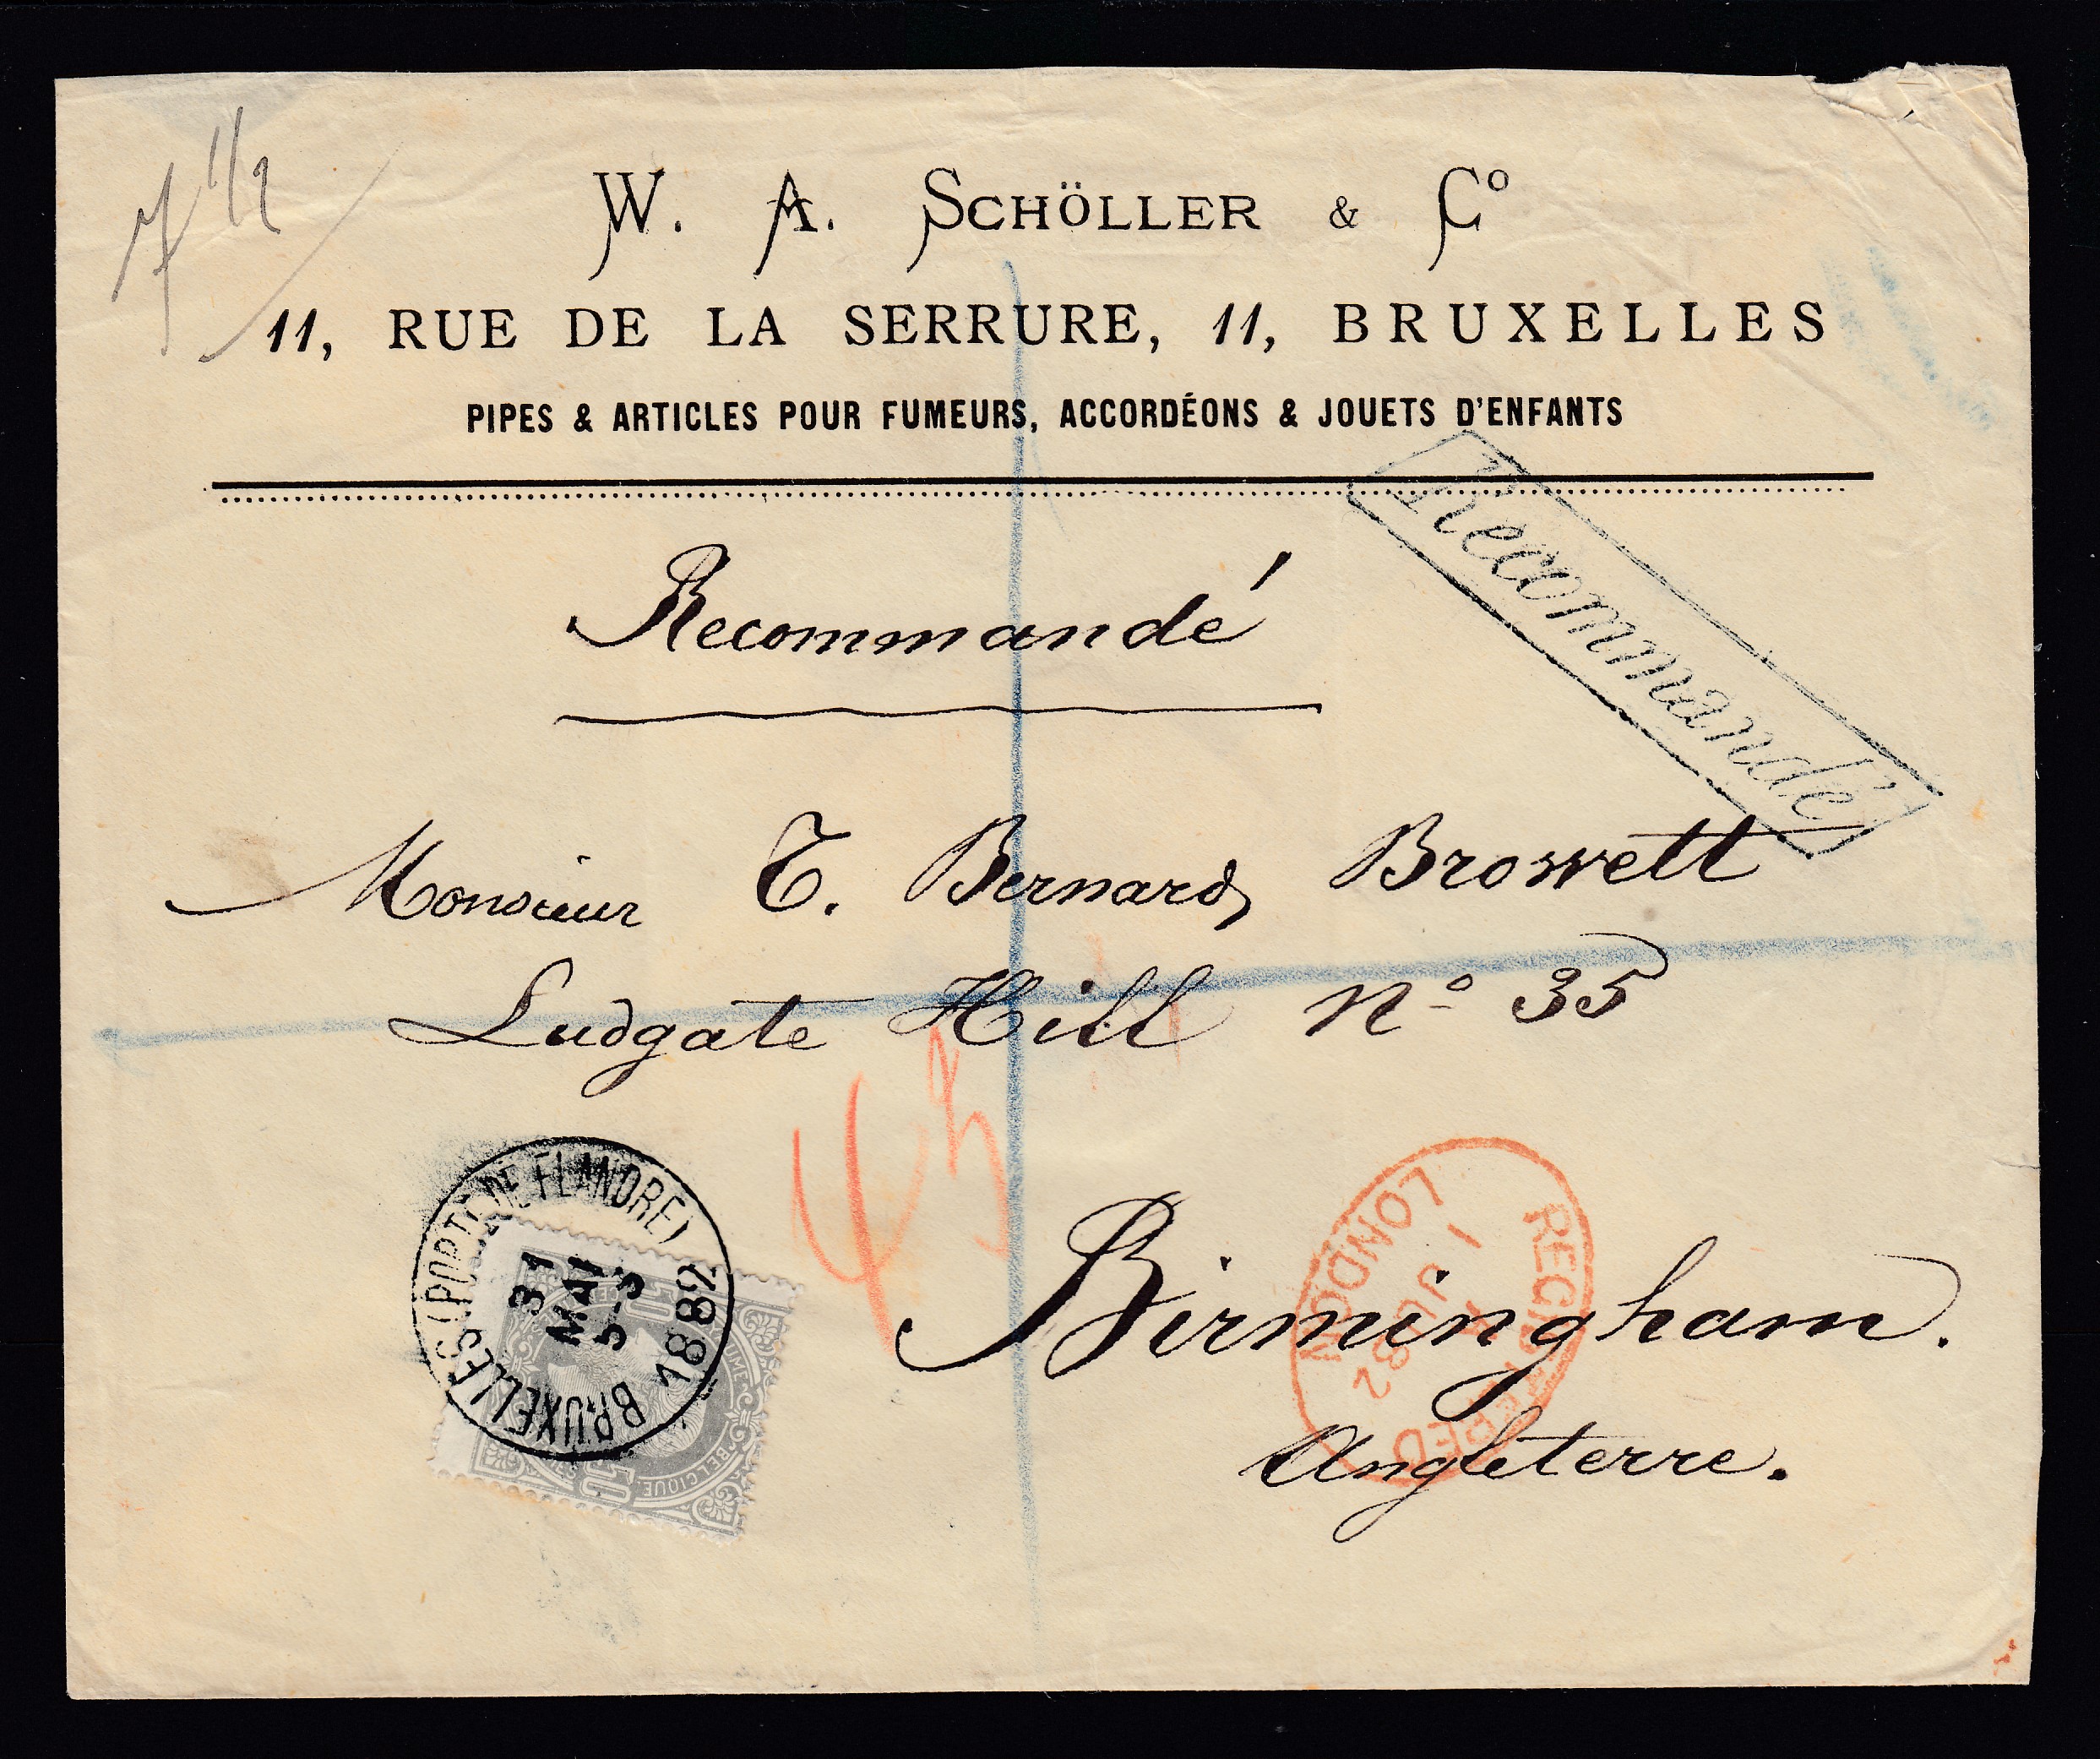 7 1/2
W. A. SCHÖLLER & Cº
11, RUE DE LA SERRURE, 11, BRUXELLES
PIPES & ARTICLES POUR FUMEURS, ACCORDÉONS & JOUETS D'ENFANTS
Recommandé
Recommandé
Monsieur T. Bernard Browett
Ludgate Hill Nº 35
Birmingham.
Angleterre.
BRUXELLES (PORTE DE FLANDRE)
31
MAI
5-S
1882
BELGIQUE
50
REGISTERED
LONDON
1 JU 82